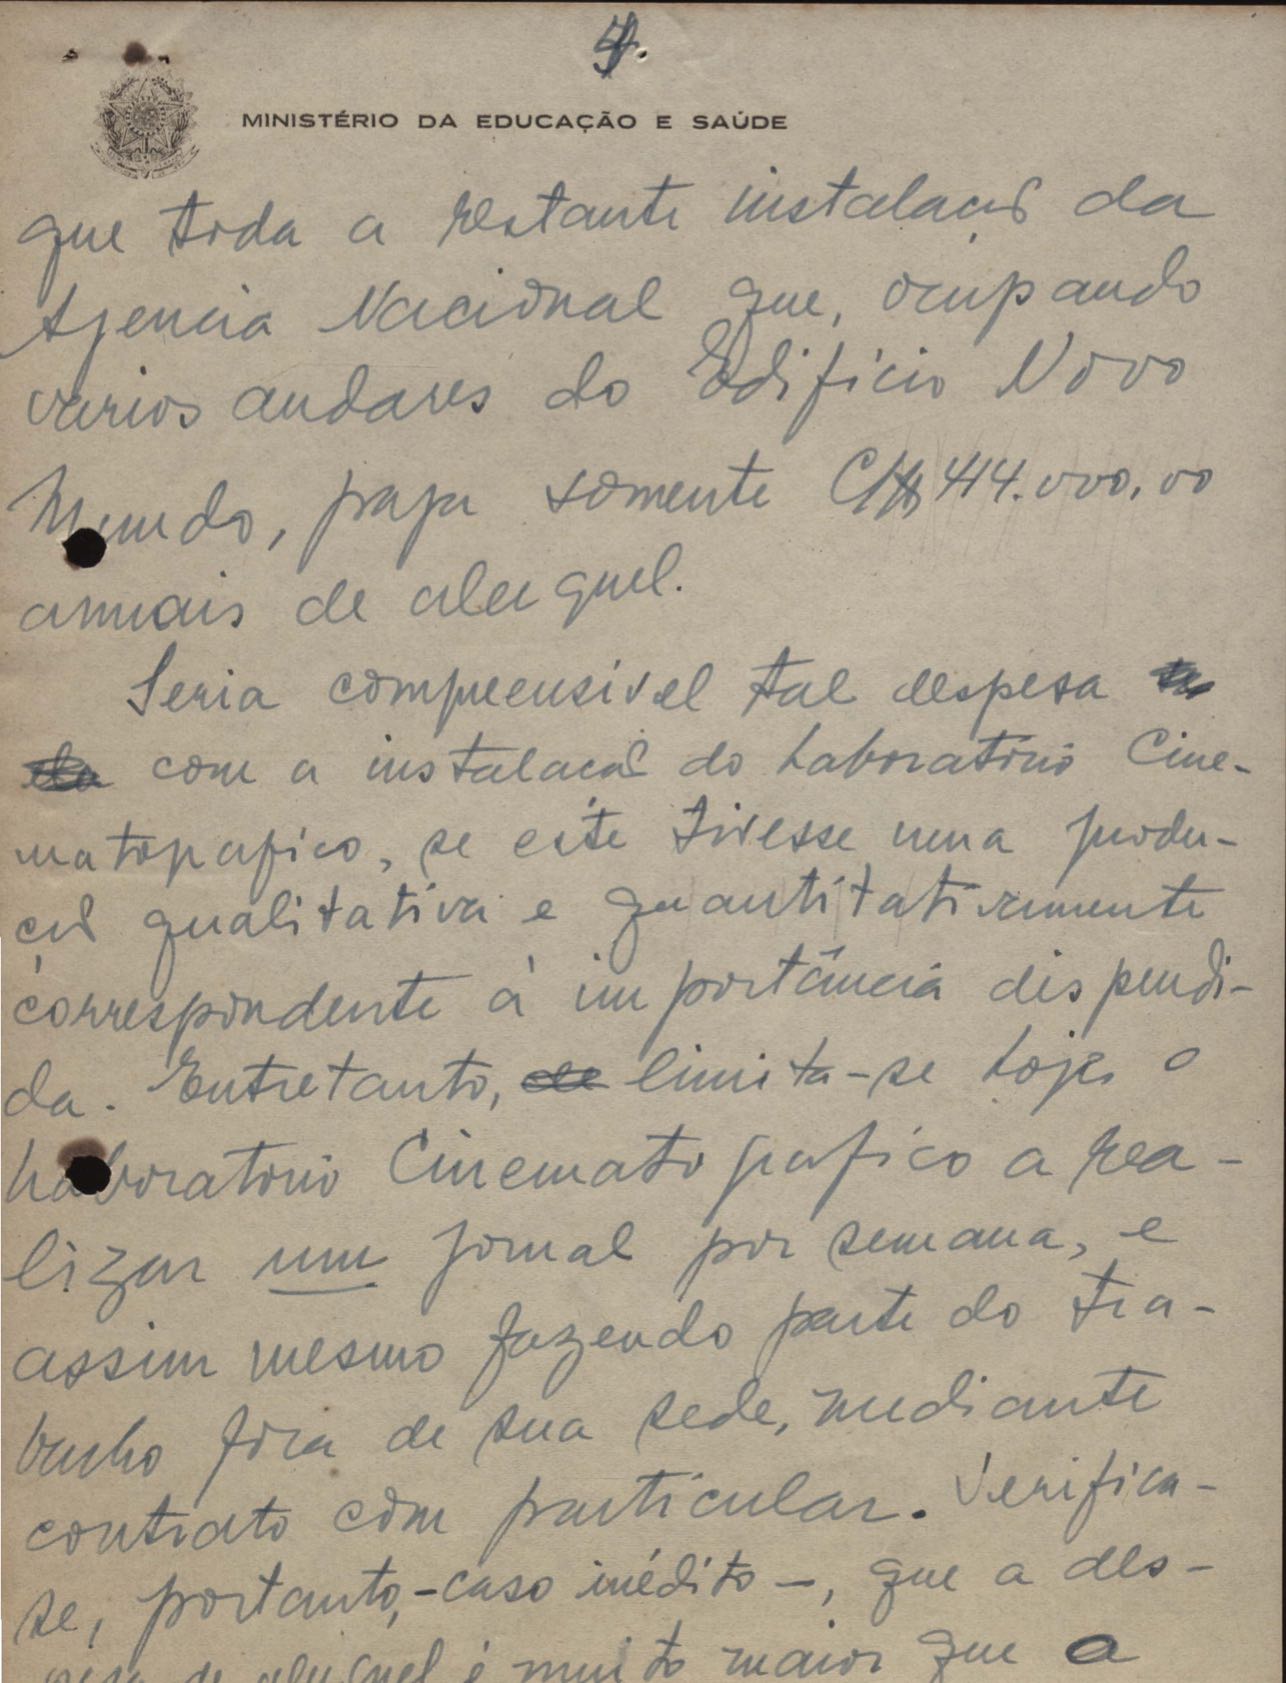 4.
MINISTÉRIO DA EDUCAÇÃO E SAÚDE
que toda a restante instalação da
Agencia Nacional que, ocupando
varios andares do Edifício Novo
Mundo, paga somente Cr$ 414.000,00
anuais de aluguel.
Seria compreensivel tal despesa
com a instalação do Laboratório Cine-
matografico, se este tivesse uma produ-
ção qualitativa e quantitativamente
correspondente à importância dispendi-
da. Entretanto, limita-se hoje o
Laboratorio Cinematografico a rea-
lizar um jornal por semana, e
assim mesmo fazendo parte do tra-
balho fóra de sua sede, mediante
contrato com particular. Verifica-
se, portanto, - caso inédito -, que a des-
pesa de aluguel é muito maior que a